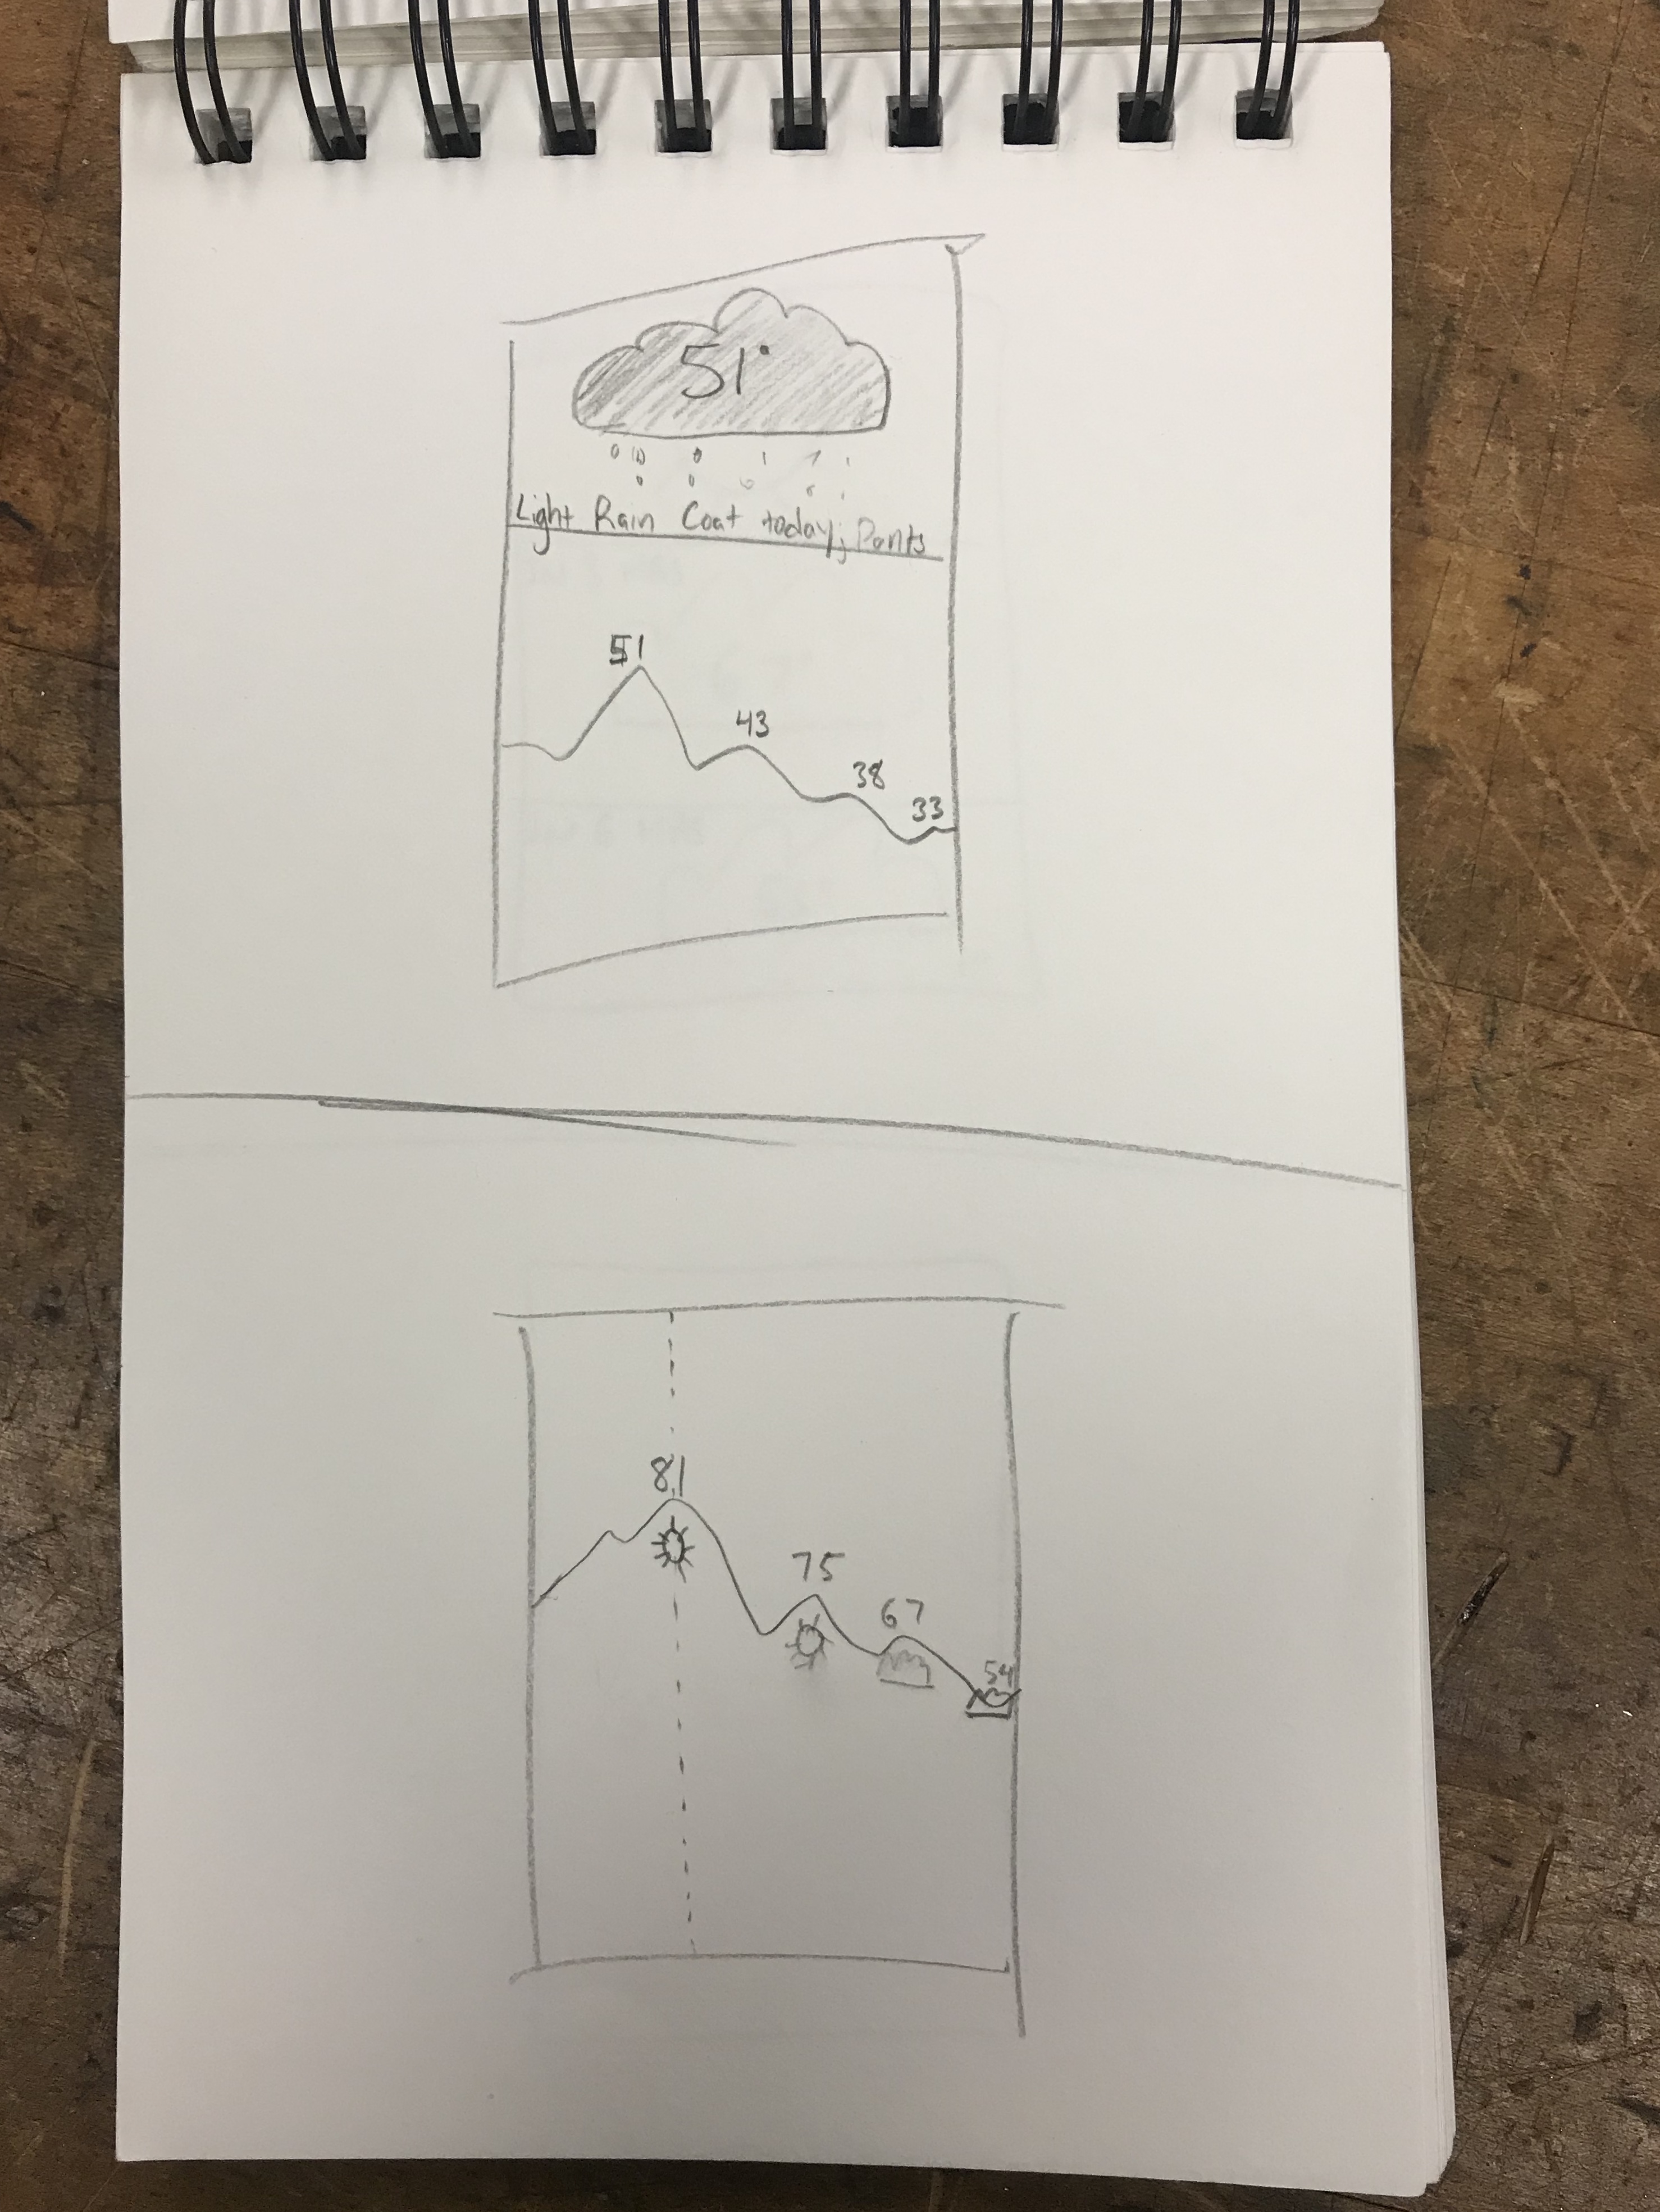 51°
Light Rain Coat today; Pants
51
43
38
33
81
75
67
54